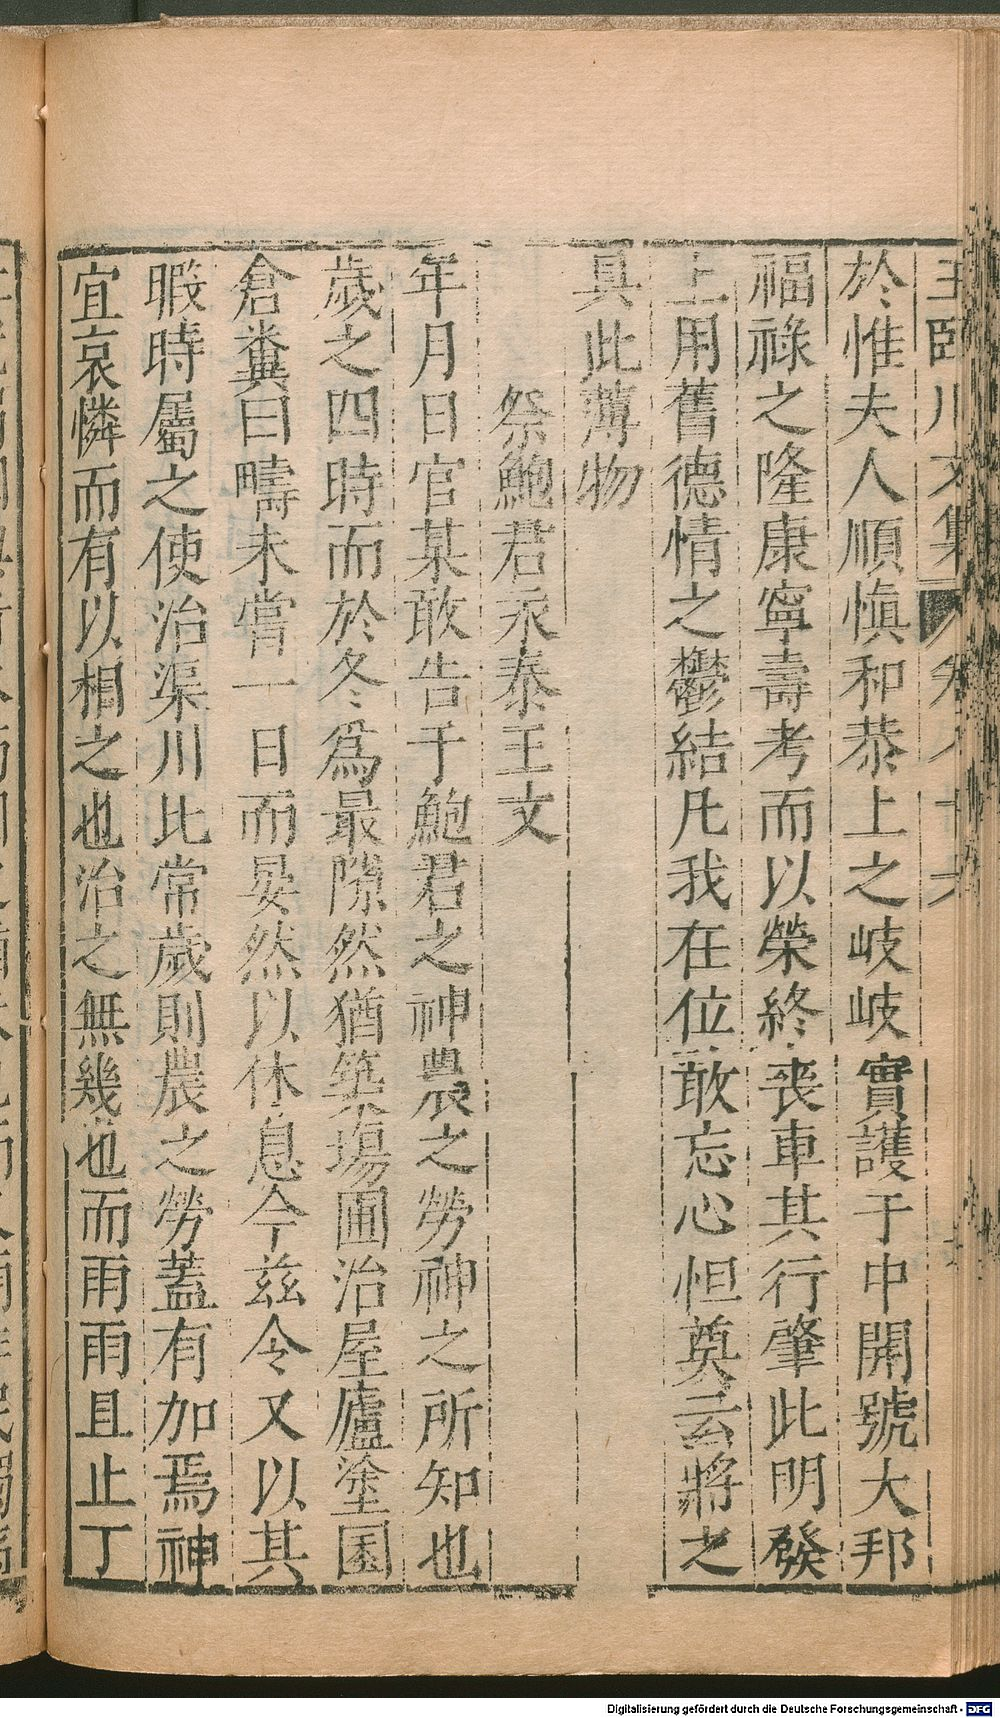 王臨川文集 卷八十六
於惟夫人順愼和恭上之岐岐實護于中開號大邦
福祿之隆康寧壽考而以榮終喪車其行肇此明發
上用舊德情之鬱結凡我在位敢忘心怛奠云將之
具此薄物
祭鮑君永泰王文
年月日官某敢告于鮑君之神農之勞神之所知也
歲之四時而於冬爲最隙然猶築場圃治屋廬塗囷
倉糞田疇未嘗一日而晏然以休息今兹令又以其
暇時屬之使治渠川比常歲則農之勞蓋有加焉神
宜哀憐而有以相之也治之無幾也而雨雨且止丁
Digitalisierung gefördert durch die Deutsche Forschungsgemeinschaft - DFG